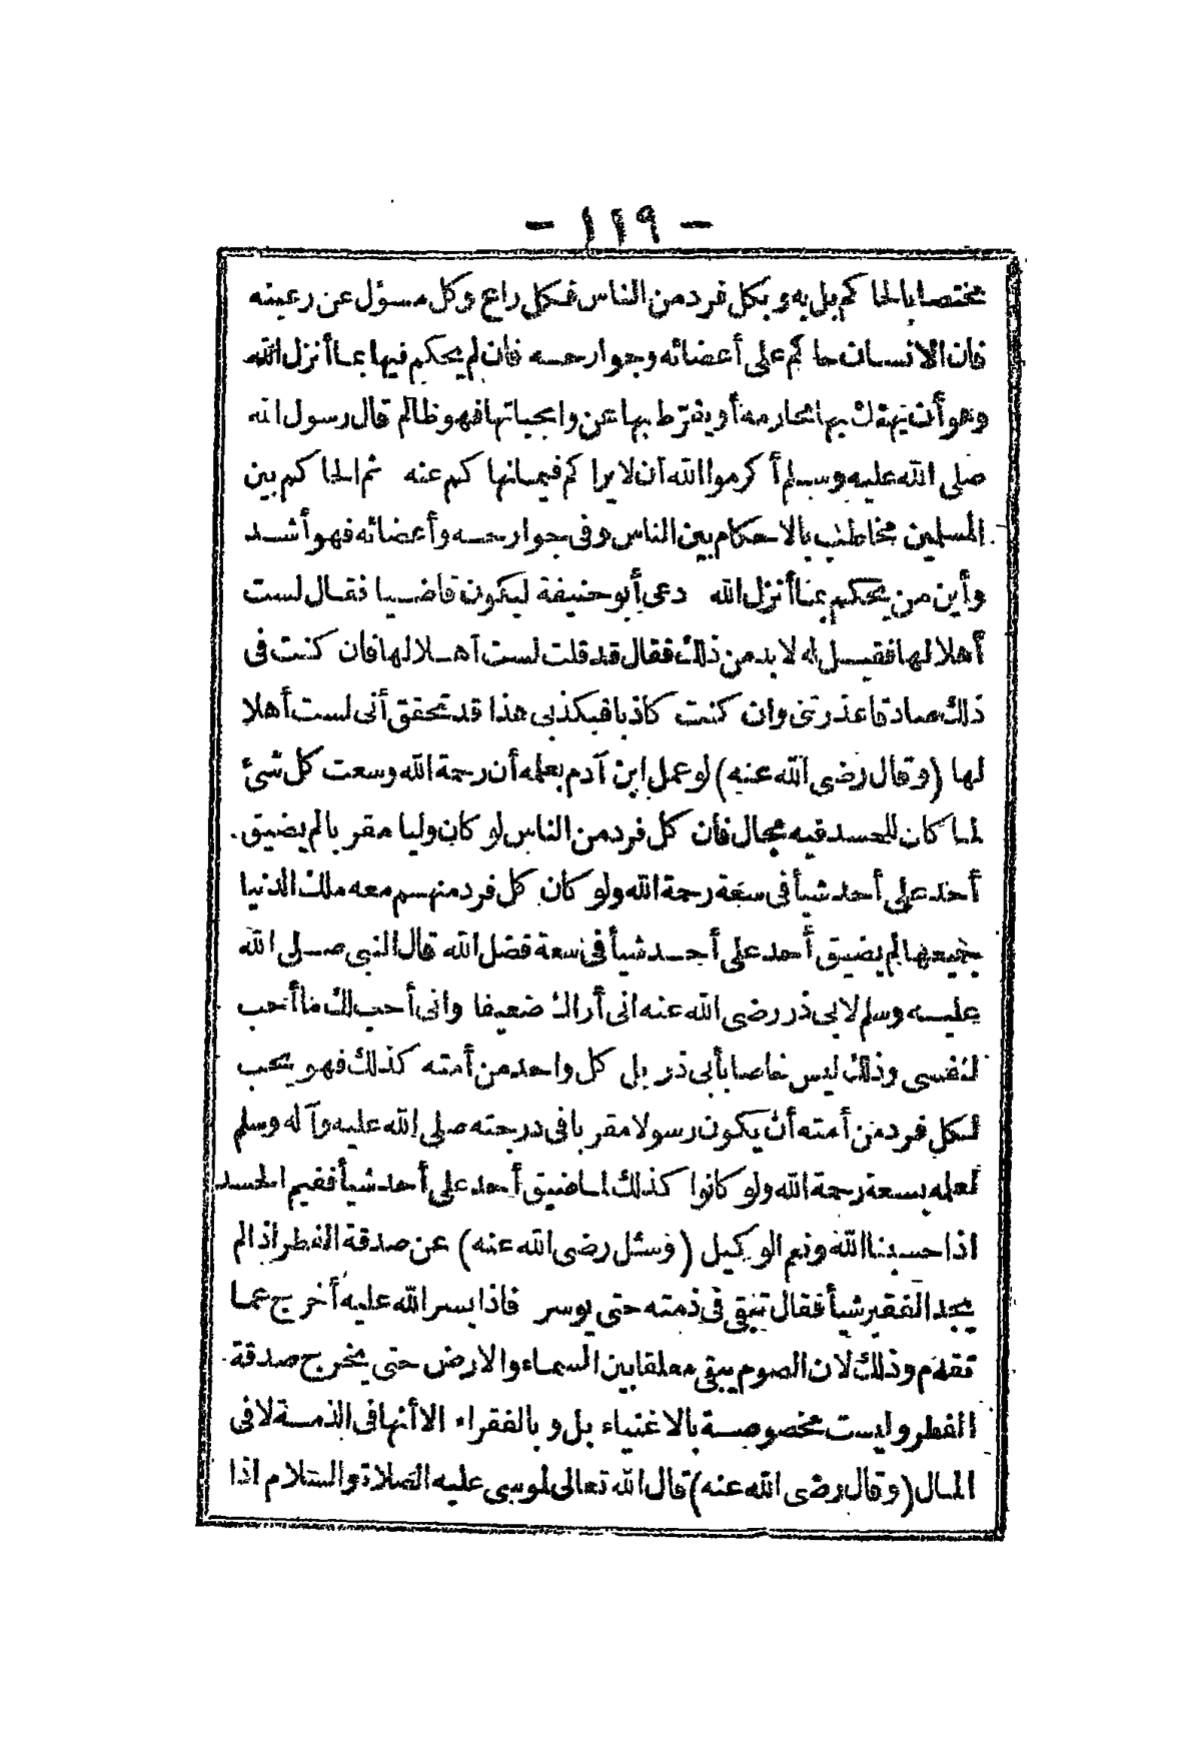 - ١١٩ -
مختصا بالحاكم بل به وبكل فرد من الناس فكل راع وكل مسؤل عن رعيته
فان الانسان حاكم على أعضائه وجوارحه فان لم يحكم فيها بما أنزل الله
وهو أن ينهتك بها محارمه أو يفرّط بها عن واجباتها فهو ظالم قال رسول الله
صلى الله عليه وسلم أكرموا الله أن لا يراكم فيما نهاكم عنه ثم الحاكم بين
المسلمين مخاطب بالاحكام بين الناس وفى جوارحه وأعضائه فهو أشد
وأين من يحكم بما أنزل الله دعى أبو حنيفة ليكون قاضيا فقال لست
أهلا لها فقيل له لا بد من ذلك فقال قد قلت لست أهلا لها فان كنت فى
ذلك صادقا عذرتنى وان كنت كاذبا فبكذبى هذا قد تحقق أنى لست أهلا
لها (وقال رضى الله عنه) لو عمل ابن آدم بعلمه أن رحمة الله وسعت كل شئ
لما كان للحسد فيه مجال فان كل فرد من الناس لو كان وليا مقربا لم يضيق
أحد على أحد شيأ فى سعة رحمة الله ولو كان كل فرد منهم معه ملك الدنيا
جميعها لم يضيق أحد على أحد شيأ فى سعة فضل الله قال النبى صلى الله
عليه وسلم لابى ذر رضى الله عنه انى أراك ضعيفا وانى أحب لك ما أحب
لنفسى وذلك ليس خاصا بأبى ذر بل كل واحد من أمته كذلك فهو يحب
لكل فرد من أمته أن يكون رسولا مقربا فى درجته صلى الله عليه وآله وسلم
لعلمه بسعة رحمة الله ولو كانوا كذلك لما ضيق أحد على أحد شيأ ففيم الحسد
اذا حسبنا الله ونعم الوكيل (وسئل رضى الله عنه) عن صدقة الفطر اذا لم
يجد الفقير شيأ فقال تبقى فى ذمته حتى يوسر فاذا يسر الله عليه أخرج عما
تقدم وذلك لان الصوم يبقى معلقا بين السماء والارض حتى يخرج صدقة
الفطر وليست مخصوصة بالاغنياء بل وبالفقراء الا أنها فى الذمة لا فى
المال (وقال رضى الله عنه) قال الله تعالى لموسى عليه الصلاة والسلام اذا